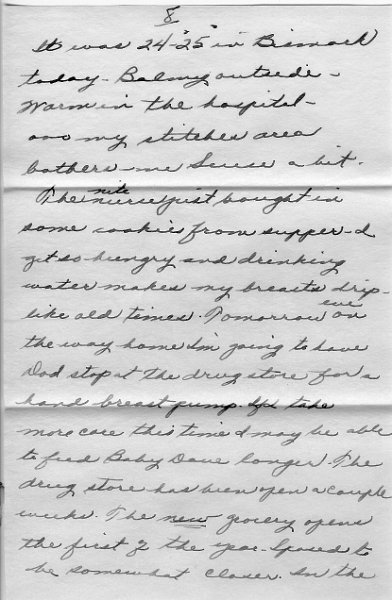 8
It was 24°-25° in Bismark
today - Balmy outside -
Warm in the hospital -
my stitches area
bothers me a bit.
The nite nurse just bought in
some cookies from supper - I
get so hungry and drinking
water makes my breasts drip -
like old times. Tomorrow eve on
the way home I'm going to have
Dad stop at the drug store for a
hand breast pump. If I take
more care this time I may be able
to feed Baby Dave longer. The
drug store has been open a couple
weeks. The new grocery opens
the first of the year. Sposed to
be somewhat closer. In the